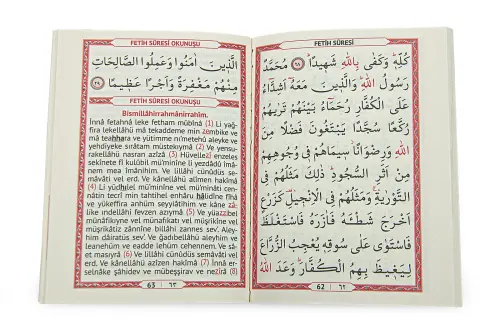 FETİH SÛRESİ
كُلِّه۪ وَكَفٰى بِاللّٰهِ شَه۪يدًا ﴿٢٨﴾ مُحَمَّدٌ
رَسُولُ اللّٰهِ وَالَّذ۪ينَ مَعَهُٓ اَشِدَّٓاءُ
عَلَى الْكُفَّارِ رُحَمَٓاءُ بَيْنَهُمْ تَرٰيهُمْ
رُكَّعًا سُجَّدًا يَبْتَغُونَ فَضْلًا مِنَ
اللّٰهِ وَرِضْوَانًا س۪يمَاهُمْ ف۪ي وُجُوهِهِمْ
مِنْ اَثَرِ السُّجُودِ ذٰلِكَ مَثَلُهُمْ فِي
التَّوْرٰيةِ وَمَثَلُهُمْ فِي الْاِنْج۪يلِ كَزَرْعٍ
اَخْرَجَ شَطْـَٔهُ فَاٰزَرَهُ فَاسْتَغْلَظَ
فَاسْتَوٰى عَلٰى سُوقِه۪ يُعْجِبُ الزُّرَّاعَ
لِيَغ۪يظَ بِهِمُ الْكُفَّارَ وَعَدَ اللّٰهُ
62 ٦٢
FETİH SÛRESİ OKUNUŞU
الَّذ۪ينَ اٰمَنُوا وَعَمِلُوا الصَّالِحَاتِ
مِنْهُمْ مَغْفِرَةً وَاَجْرًا عَظ۪يمًا ﴿٢٩﴾
FETİH SÛRESİ OKUNUŞU
Bismillâhirrahmânirrahîm.
İnnâ fetahnâ leke fetham mübînâ (1) Li yağ-
fira lekellâhü mâ tekaddeme min zembike ve
mâ teahhara ve yütimme ni'metehû aleyke ve
yehdiyeke sırâtam müstekıymâ (2) Ve yensu-
rakellâhü nasran azîzâ (3) Hüvellezî enzeles
sekînete fî kulûbil mü'minîne li yezdâdû îmâ-
nem mea îmânihim. Ve lillâhi cünûdüs se-
mâvâti vel ard. Ve kânellâhü alîmen hakîmâ
(4) Li yüdhılel mü'minîne vel mü'minâti cen-
nâtin tecrî min tahtihel enhâru hâlidîne fîhâ
ve yükeffira anhüm seyyiâtihim ve kâne zâ-
like ındellâhi fevzen azıymâ (5) Ve yüazzibel
münâfikıyne vel münafikâti vel müşrikîne vel
müşrikâtiz zânnîne billâhi zannes sev'. Aley-
him dâiratüs sev'. Ve ğadıbellâhü aleyhim ve
leanehüm ve eadde lehüm cehennem. Ve sâ-
et masıyrâ (6) Ve lillâhi cünûdüs semâvâti vel
erd. Ve kânellâhü azîzen hakîmâ (7) İnnâ er-
selnâke şâhidev ve mübeşşirav ve nezîrâ (8)
63 ٦٣